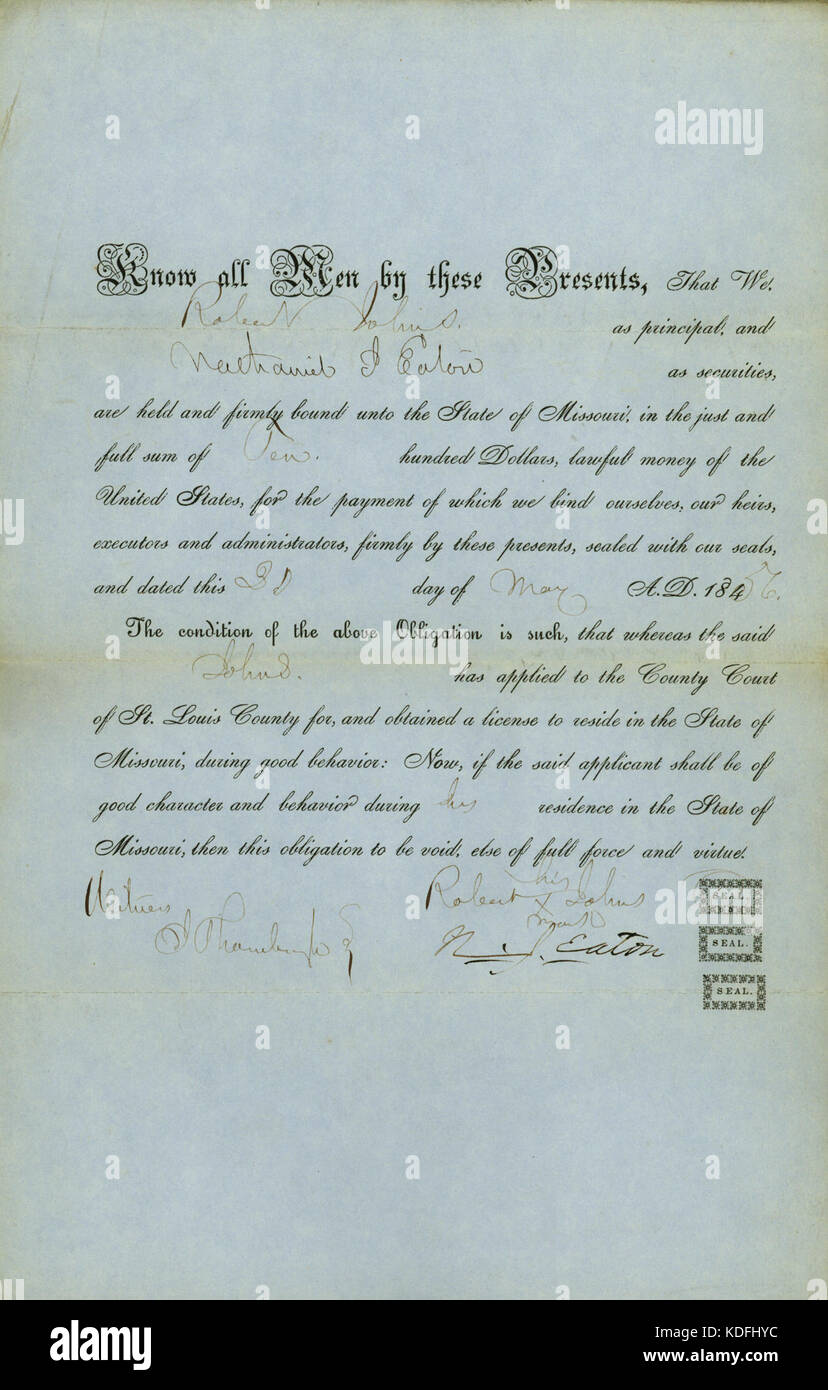 Know all Men by these Presents, That We,
Robert Johns. as principal, and
Nathaniel J Eaton as securities,
are held and firmly bound unto the State of Missouri, in the just and
full sum of Ten. hundred Dollars, lawful money of the
United States, for the payment of which we bind ourselves, our heirs,
executors and administrators, firmly by these presents, sealed with our seals,
and dated this 3d day of May A.D. 184
The condition of the above Obligation is such, that whereas the said
Johns. has applied to the County Court
of St. Louis County for, and obtained a license to reside in the State of
Missouri, during good behavior: Now, if the said applicant shall be of
good character and behavior during his residence in the State of
Missouri, then this obligation to be void, else of full force and virtue.
his
Witness Robert X Johns SEAL.
mark
N. J. Eaton SEAL.
SEAL.
alamy
alamy
alamy stock photo
alamy
alamy
a alamy stock photo
KDFHYC
www.alamy.com